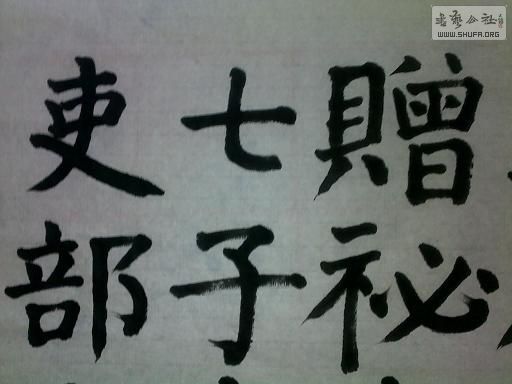 贈祕
七子
吏部
書藝公社
WWW.SHUFA.ORG